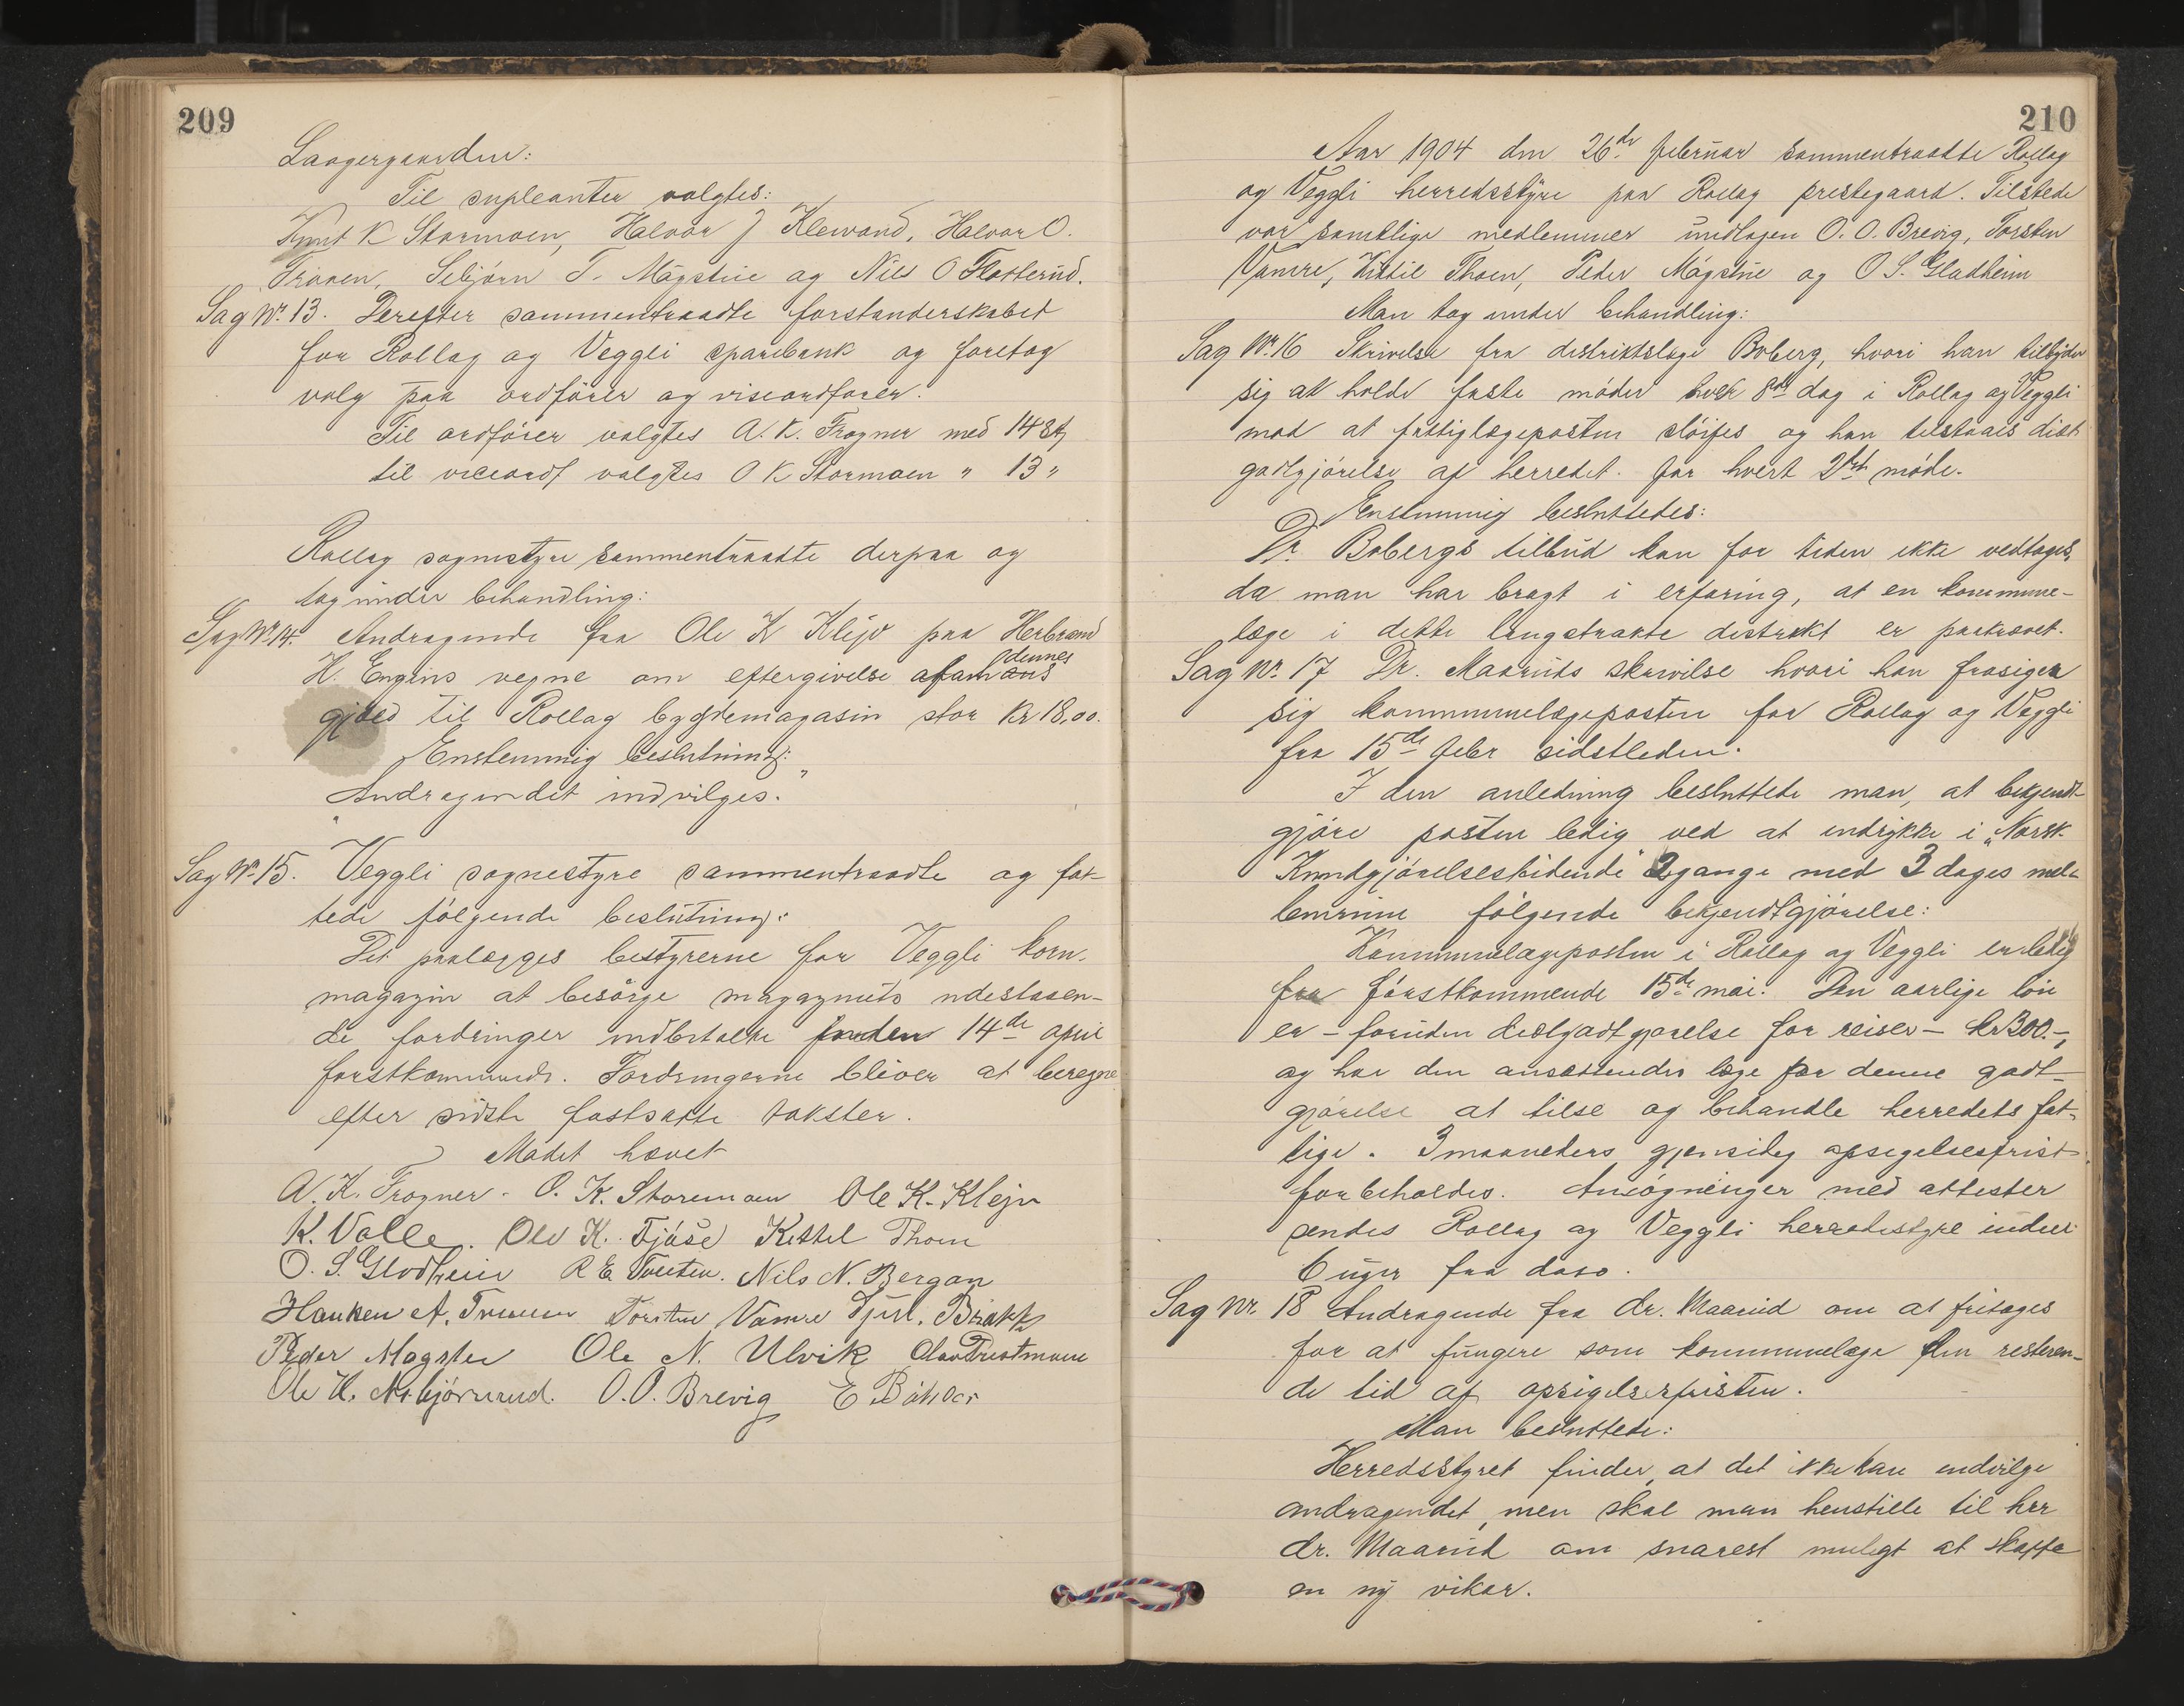 209
Laagergaarden:
Til supleanter valgtes:
Knut K Stormoen, Halvor J Klewand, Halvor O.
Traaen, Sebjørn T. Møgstue og Nils O Flatterud.
Sag Nr. 13. Derefter sammentraadte forstanderskabet
for Rollag og Veggli sparebank og foretog
valg paa ordfører og viseordfører.
Til ordfører valgtes A. K. Frogner med 14 st,
til viceordf valgtes O K Stormoen " 13 "
Rollag sognestyre sammentraadte derpaa og
tog under behandling:
Sag Nr. 14. Andragende fra Ole K Klejv paa Herbrand
H. Engens vegne om eftergivelse af dennes
gjæld til Rollag bygdemagasin stor Kr 18,00.
Enstemmig beslutning:
"Andragendet indvilges."
Sag Nr. 15. Veggli sognestyre sammentraadte og fat-
tede følgende beslutning:
Det paalægges bestyrerne for Veggli korn-
magazin at besørge magazinets udestaaen-
de fordringer indbetalte inden 14de april
førstkommende. Fordringerne bliver at beregne
efter sidste fastsatte takster.
Mødet hævet
A. K. Frogner. O. K. Storemoen Ole K. Klejv
K. Valle. Ole K. Fjøse Kittel Thoen
O. S. Glodheim R E Tveiten. Nils N. Bergan
Haaken A. Traaen Torsten Vamre
Peder Mogsteu Ole N. Ulvik
O. O. Brevig
210
Aar 1904 den 26de februar sammentraadte Rollag
og Veggli herredsstyre paa Rollag prestegaard. Tilstede
var samtlige medlemmer undtagen O. O. Brevig, Torsten
Vamre, Kittil Thoen, Peder Møgstue og O S. Gladheim
Man tog under behandling:
Sag Nr. 16 Skrivelse fra distriktslæge Boberg, hvori han tilbyder
sig at holde faste møder hver 8de dag i Rollag og Veggli
mod at fattiglægeposten sløifes og han tilstaaes diæt
godtgjørelse af herredet for hvert 2det møde.
Enstemmig besluttedes:
Dr. Bobergs tilbud kan for tiden ikke vedtages,
da man har bragt i erfaring, at en kommune-
læge i dette langstrakte distrikt er paakrævet.
Sag Nr. 17 Dr. Maaruds skrivelse hvori han frasiger
sig kommunelægeposten for Rollag og Veggli
fra 15de febr sidstleden.
I den anledning besluttede man, at bekjendt-
gjøre posten ledig ved at indrykke i "Norsk
Kundgjørelsestidende" 2 gange med 3 dages mel-
lemrum følgende bekjendtgjørelse:
Kommunelægeposten i Rollag og Veggli er ledig
fra førstkommende 15de mai. Den aarlige løn
er - foruden diætgodtgjørelse for reiser - kr 300.-,
og har den ansættendes læge for denne godt-
gjørelse at tilse og behandle herredets fat-
tige. 3 maaneders gjensidig opsigelsesfrist
forbeholdes. Ansøgninger med attester
sendes Rollag og Veggli herredsstyre inden
6 uger fra dato.
Sag Nr. 18 Andragende fra dr. Maarud om at fritages
for at fungere som kommunelæge den resteren-
de tid af opsigelsesfristen.
Man besluttede:
Herredsstyret finder, at det ikke kan indvilge
andragendet, men skal man henstille til hr
dr. Maarud om snarest muligt at skaffe
en ny vikar.